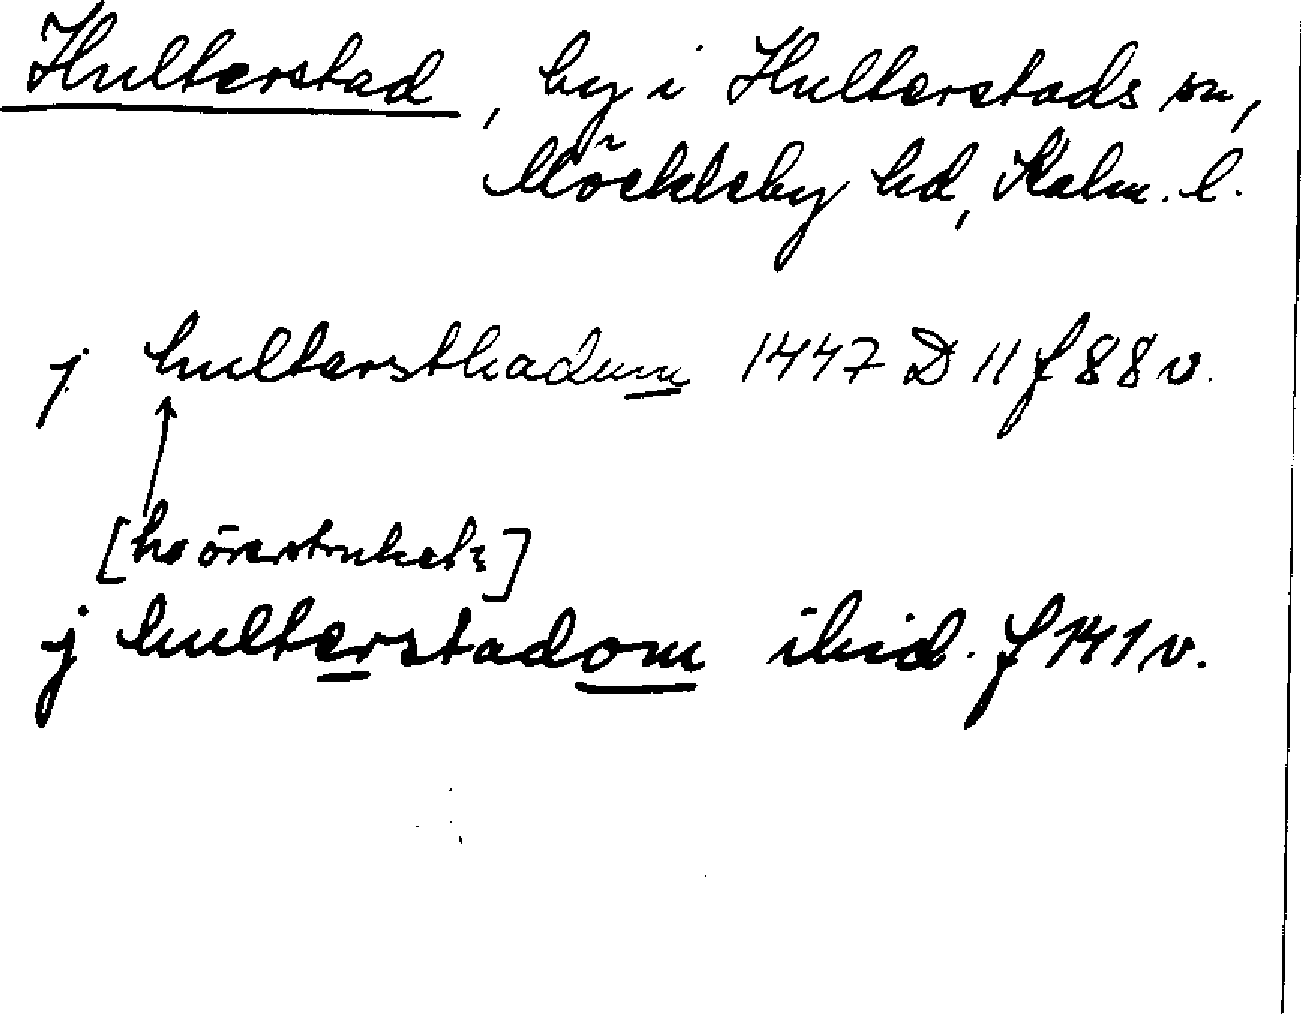 Hulterstad, by i Hulterstads sn,
Möckleby hd, Kalm. l.
j hultersthadum 1447 D 11 f 88 v.
[h överstruket]
j hulterstadom ibid. f 141 v.